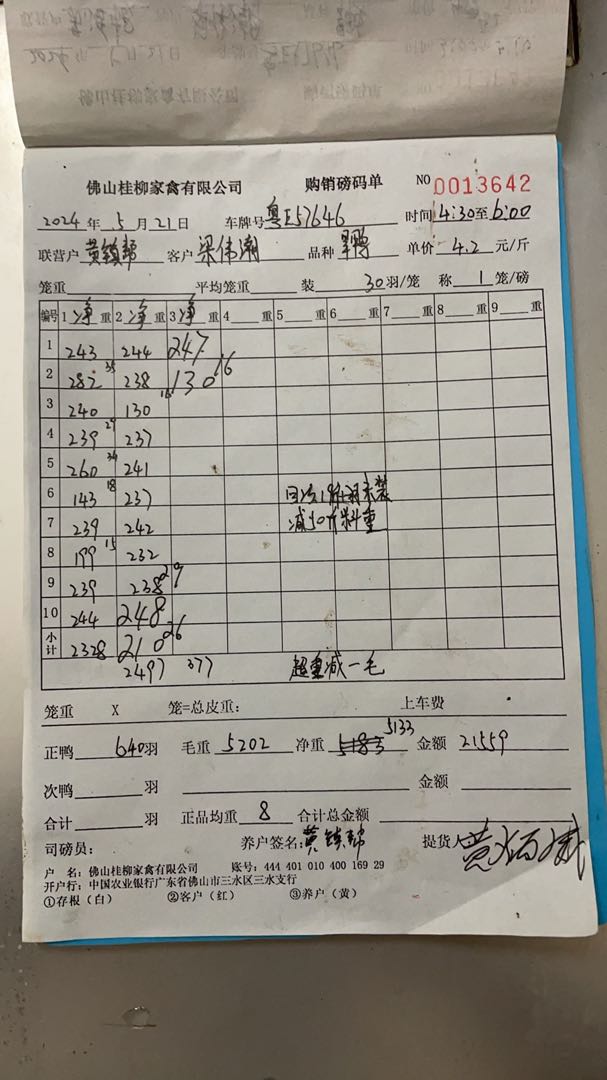 佛山桂柳家禽有限公司 购销磅码单 NO 0013642
2024年 5月 21日 车牌号 粤E57646 时间 4:30至 6:00
联营户 黄镇邦 客户 梁伟潮 品种 单价 4.2 元/斤
笼重 平均笼重 装 30 羽/笼 称 1 笼/磅
编号 1 净 重 2 净 重 3 净 重 4 重 5 重 6 重 7 重 8 重 9 重
1 243 244 247
2 282 35 238 130 16
3 240 130 16
4 239 29 237
5 260 34 241
6 143 18 237
7 239 242 减50斤料重
8 199 15 232
9 239 238 29
10 244 248
小计 2328 210 26
2497 377 超重减一毛
笼重 X 笼=总皮重： 上车费
正鸭 640羽 毛重 5202 净重 5183 5133 金额 21559
次鸭 羽 金额
合计 羽 正品均重 8 合计总金额
司磅员： 养户签名：黄镇邦 提货人
户 名：佛山桂柳家禽有限公司 账号：444 401 010 400 169 29
开户行：中国农业银行广东省佛山市三水区三水支行
①存根（白） ②客户（红） ③养户（黄）